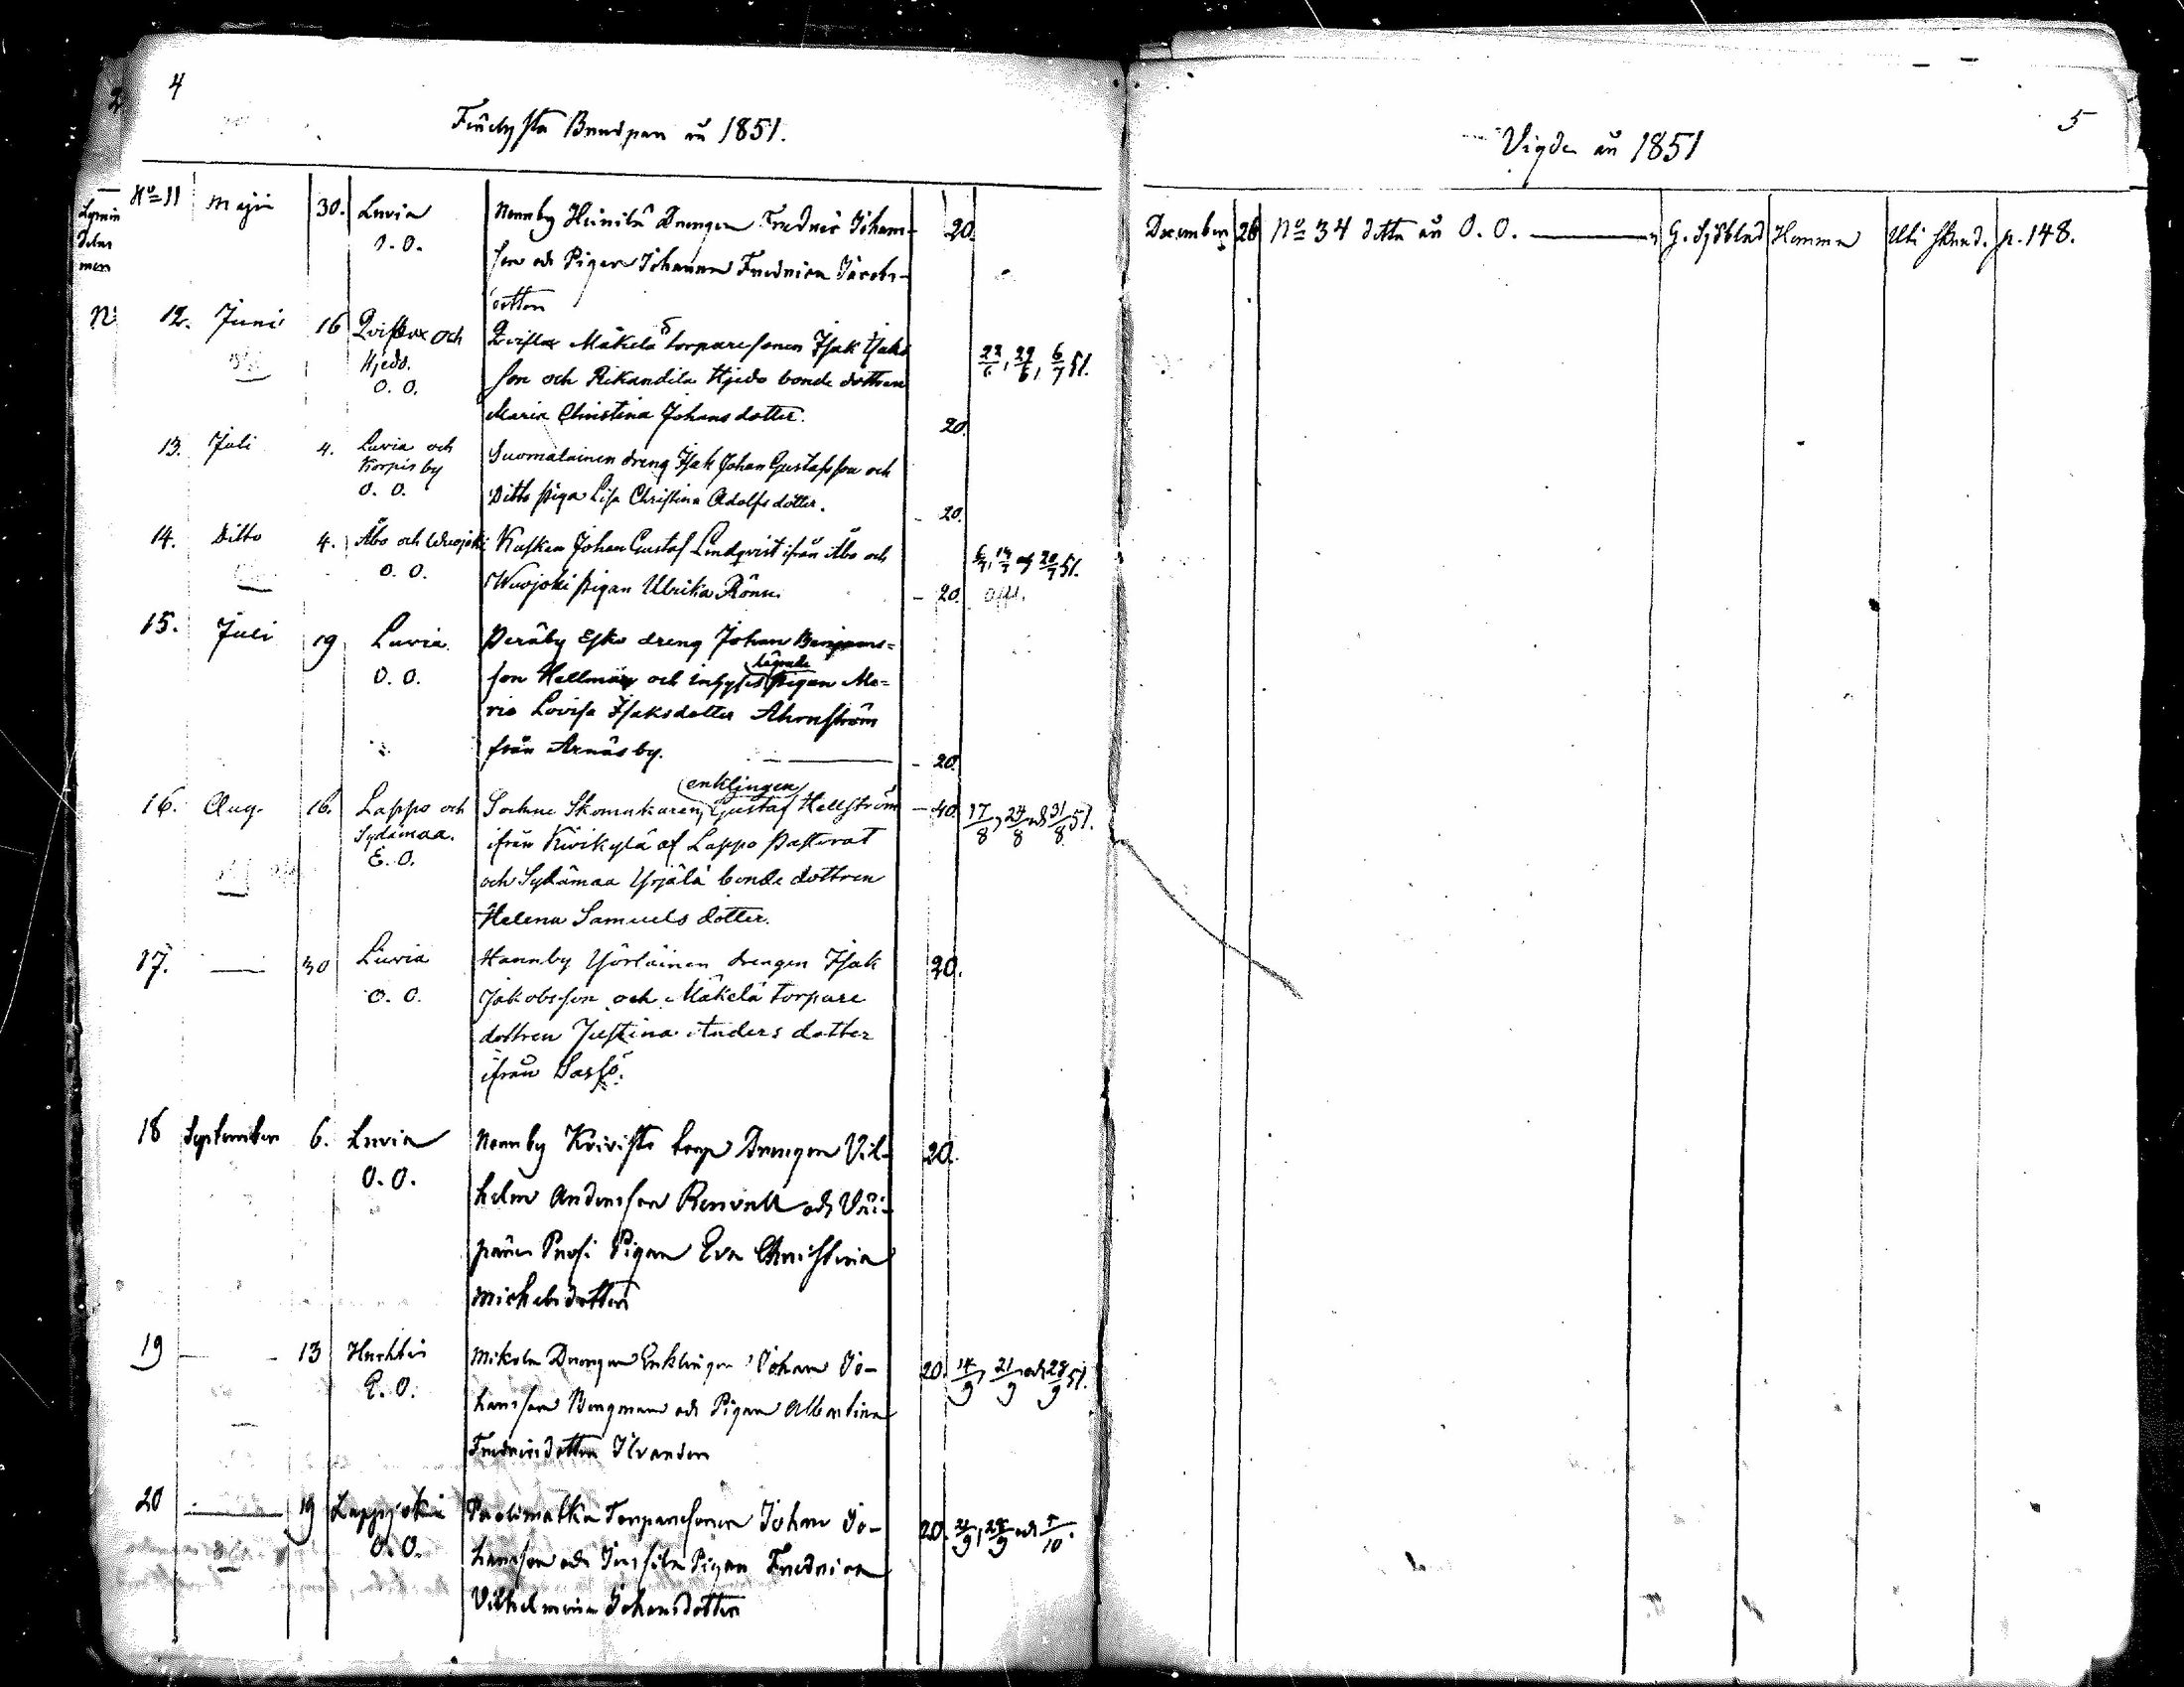 4
Fästa Brudpar år 1851.
No 11 Maji 30. Luvia
O. O.
Nannby Heinilä Drengen Fredric Johans-
son och Pigan Johanna Fredrica Jacobs-
dotter 20.
N: 12. Juni 16 Qviflax och
Hjedo.
O. O.
Qviflax Mäkelä torpare sonen Isak Isaks
son och Rikandila Hjedo bonde dottren
Maria Christina Johansdotter. 20.
22/6, 29/6, 6/7 51.
13. Juli 4. Luvia och
Korpis by
O. O.
Suomalainen dreng Isak Johan Gustafsson och
Ditto piga Lisa Christina Adolfsdotter. - 20.
14. Ditto 4. Åbo och Wuojoki
O. O.
Kusken Johan Gustaf Lindqvist ifrån Åbo och
Wuojoki pigan Ulrika Rönn. - 20.
6/7, 13/7 och 20/7 51.
15. Juli 19 Luvia.
O. O.
Peräby Esko dreng Johan Benjams=
son Hellman och inhyses pigan Ma=
ria Lovisa Isaksdotter Ahrnström
från Arnäsby. - 20.
16. Aug. 16. Lappo och
Sydämaa.
E. O.
Sockne Skomakaren, enklingen Gustaf Hellström - 40.
ifrån Kivikylä af Lappo Pastorat
och Sydämaa Yrjälä bonde dottren
Helena Samuels dotter.
17/8, 24/8 och 31/8 51.
17. — 30 Luvia
O. O.
Hannby Yörläinen drengen Isak 20.
Jakobsson och Mäkelä torpare
dottren Justina Anders dotter
ifrån Sassö.
18 September 6. Luvia
O. O.
Nannby Kivisto torp Drengen Vil- 20.
helm Andersson Renvall och Väi-
pärä Pigan Eva Christina
Michelsdotter
19 — 13 Huchtis
E. O.
Mikola Drengen Enklingen Johan Jo-
hansson Bergman och Pigan Albertina
Fredricsdotter Ilvander
20. 14/9, 21/9 och 28/9 51.
20 — 19 Lappjoki
O. O.
Torparesonen Johan Jo-
hansson och Pigan Fredrica
Vilhelmina Johansdotter
20. 21/9, 28/9 och 5/10.
Vigde år 1851
5
December 26 No 34 detta år O. O. — G. Sjöblad Hemma Uti Husd. p. 148.